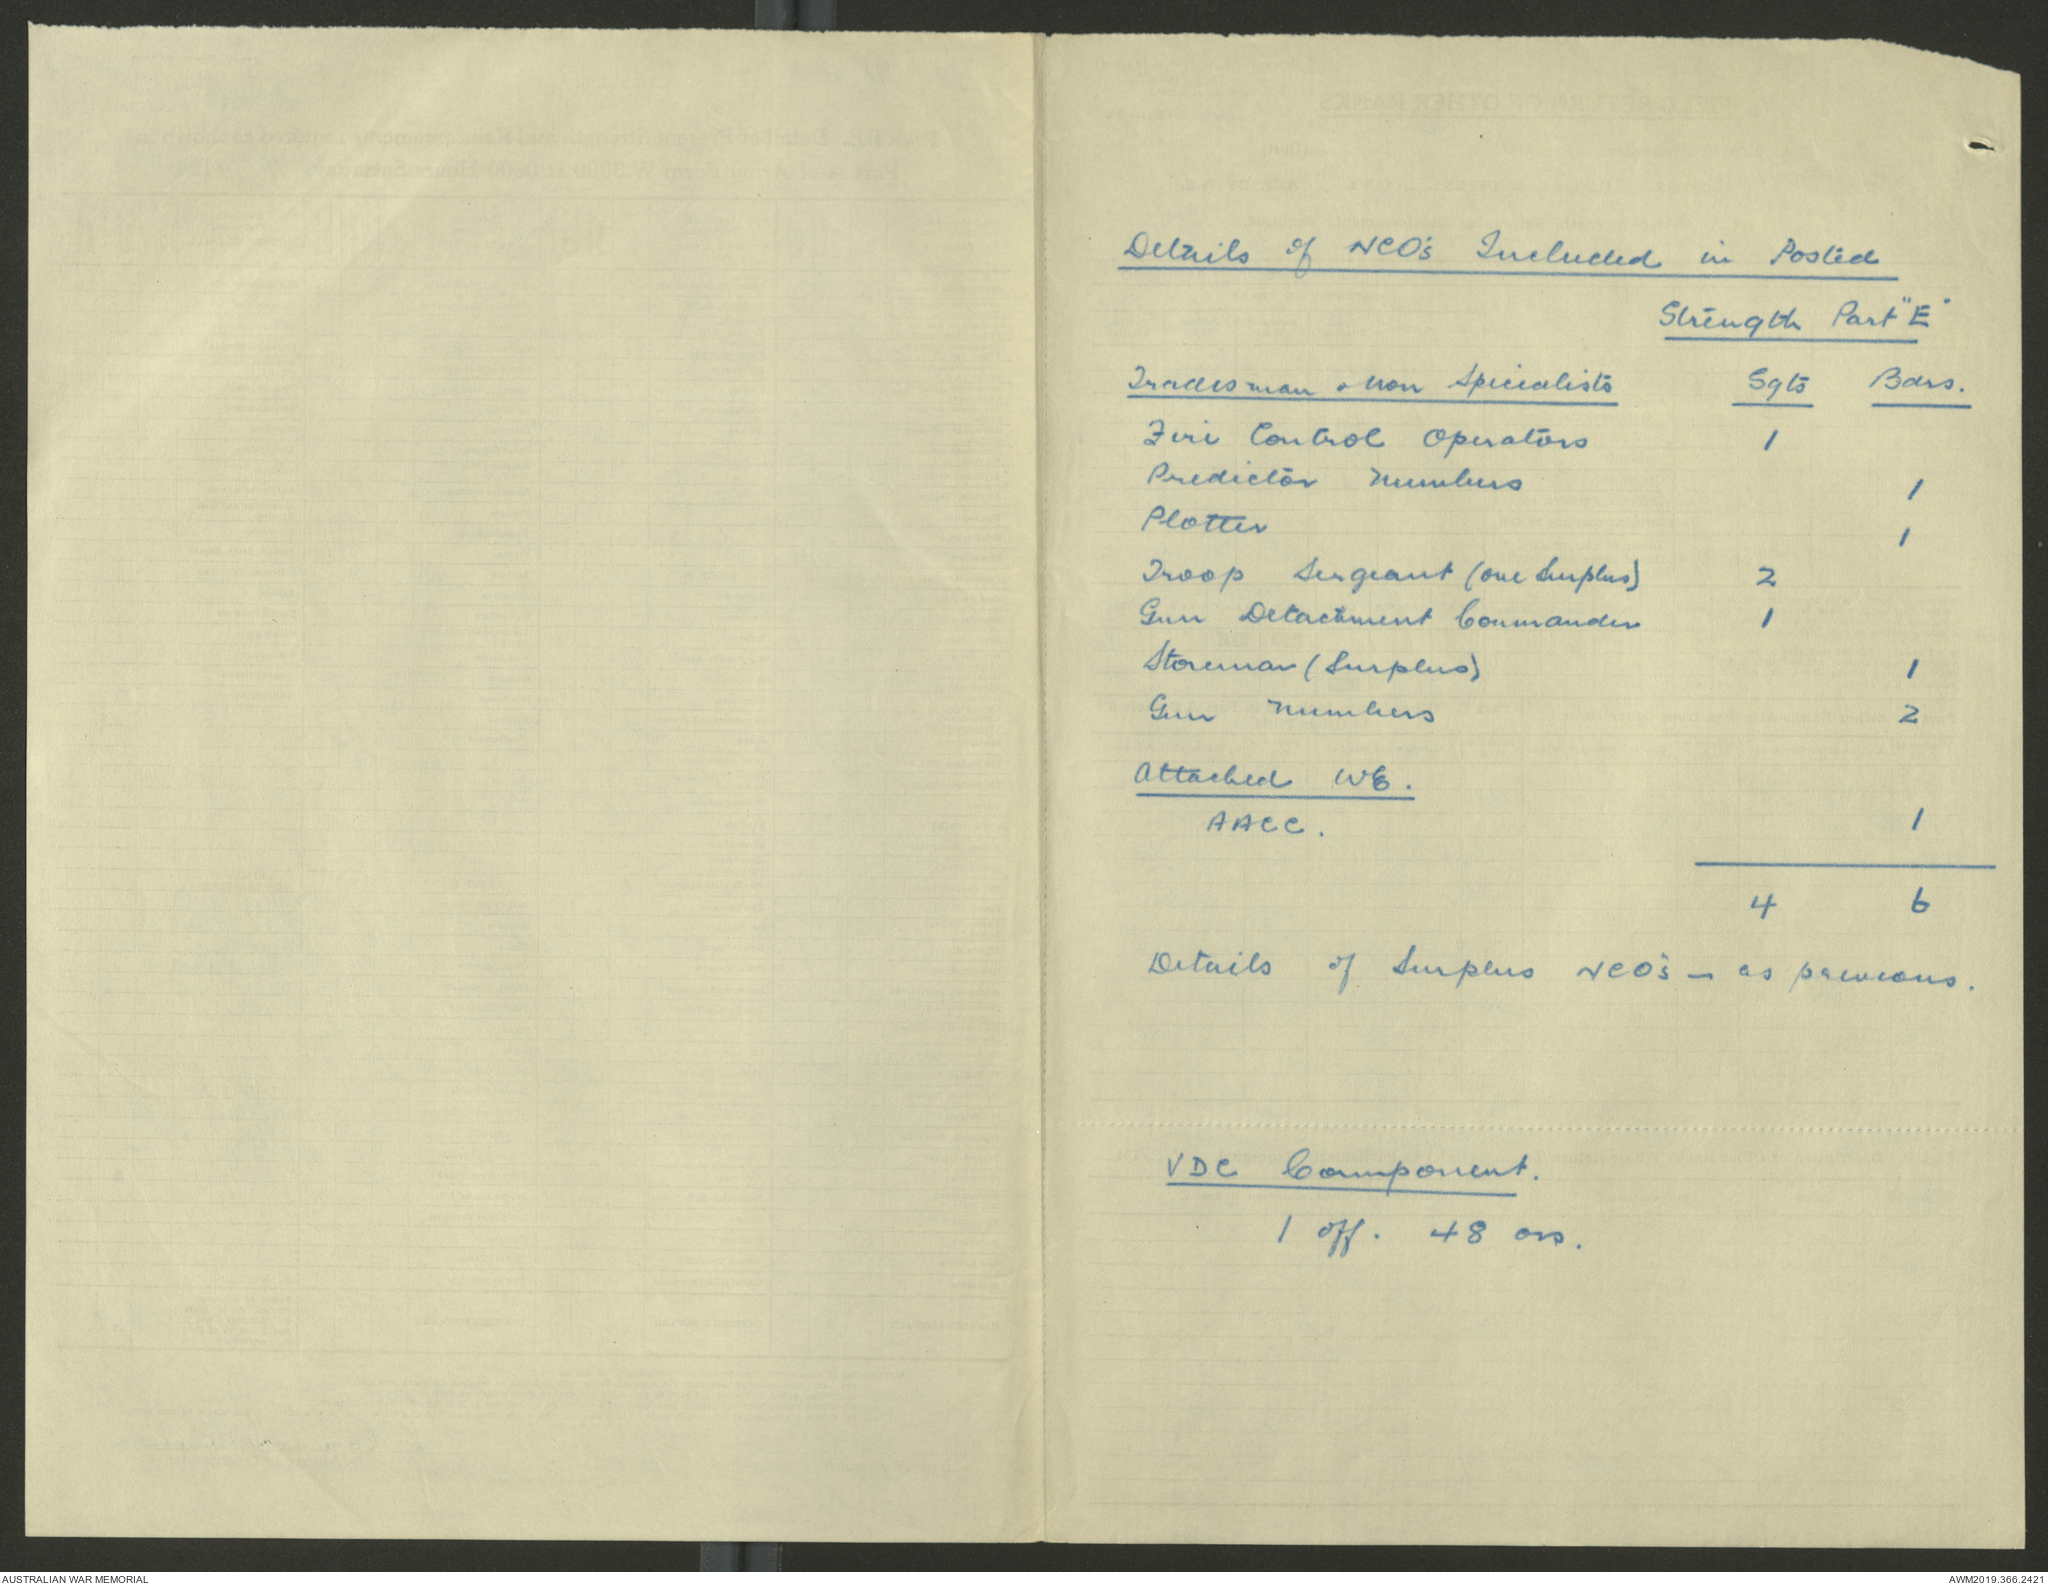 Details of NCO's Included in Posted
Strength Part "E"
Tradesman & Non Specialists Sgts Bdrs.
Fire Control Operators 1
Predictor Numbers 1
Plotter 1
Troop Sergeant (one Surplus) 2
Gun Detachment Commander 1
Storeman (Surplus) 1
Gun Numbers 2
Attached WE.
AACC. 1
4 6
Details of Surplus NCO's - as previous.
VDC Component.
1 off. 48 ors.
AUSTRALIAN WAR MEMORIAL
AWM2019.366.2421